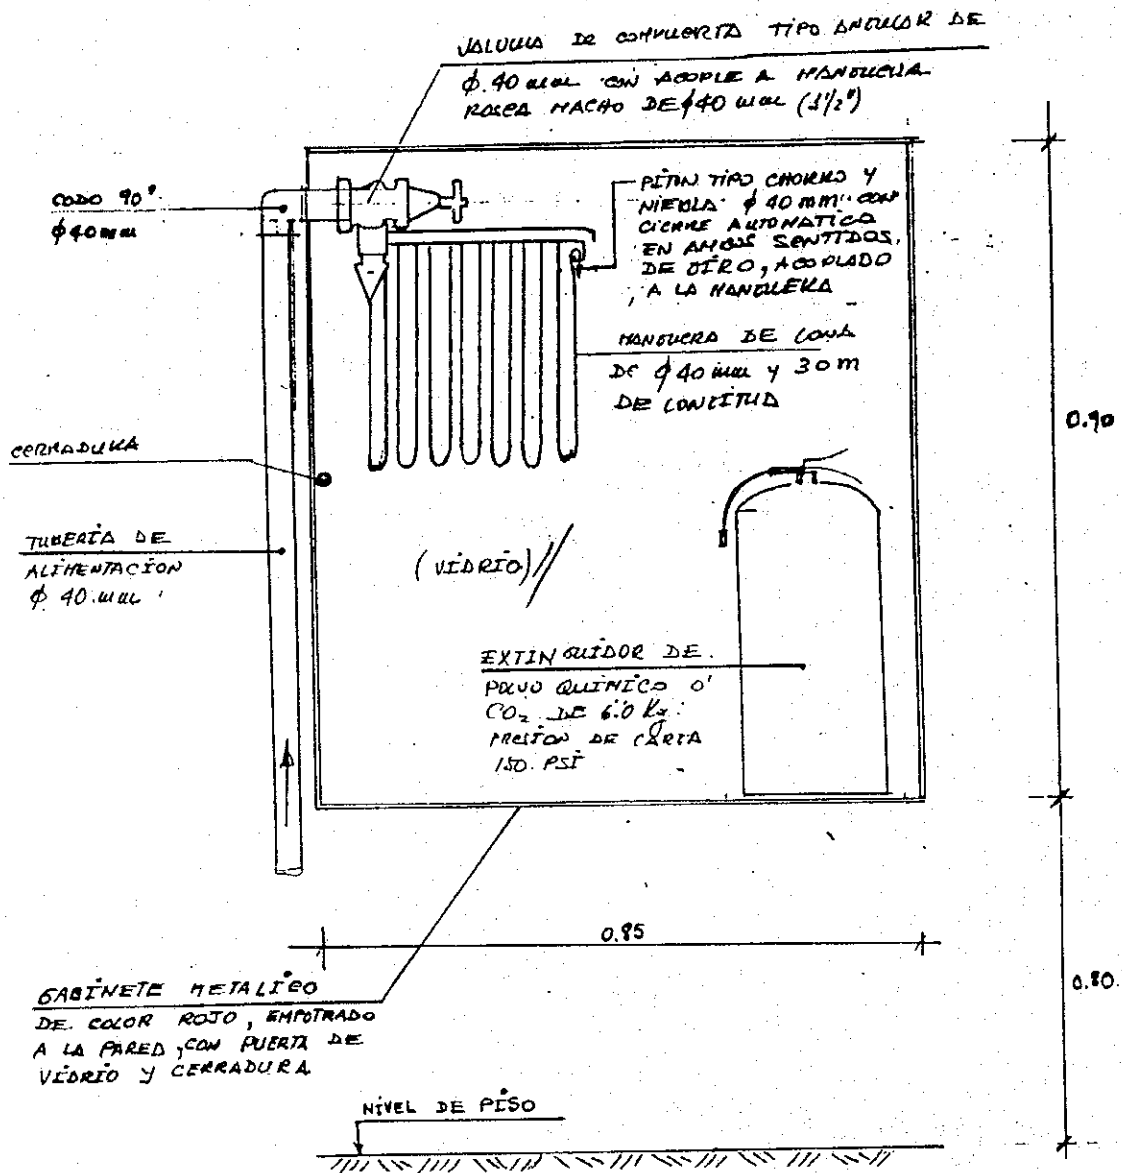 VALVULA DE COMPUERTA TIPO ANGULAR DE
φ 40 mm CON ACOPLE A MANGUERA
ROSCA MACHO DE φ40 mm (1 1/2")
CODO 90°
φ40mm
PITON TIPO CHORRO Y
NIEBLA φ 40 mm CON
CIERRE AUTOMATICO
EN AMBOS SENTIDOS
DE GIRO, ACOPLADO
A LA MANGUERA
MANGUERA DE LONA
DE φ40 mm y 30 m
DE LONGITUD
0.90
CERRADURA
TUBERÍA DE
ALIMENTACIÓN
φ 40 mm
(VIDRIO)
EXTINGUIDOR DE
POLVO QUÍMICO O'
CO₂ DE 6.0 Kg.
PRESION DE CARGA
150 PSI
0.85
GABINETE METALICO
DE COLOR ROJO, EMPOTRADO
A LA PARED, CON PUERTA DE
VIDRIO Y CERRADURA
0.80
NIVEL DE PISO